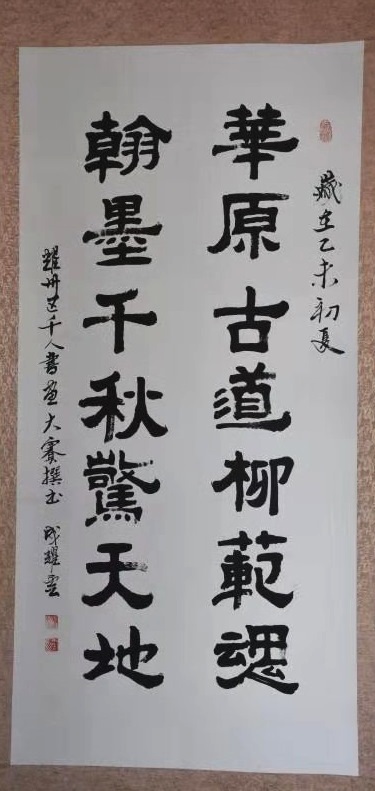 歲在乙未初夏
華原古道柳範魂
翰墨千秋驚天地
耀州区千人書畫大賽撰书 成耀雲